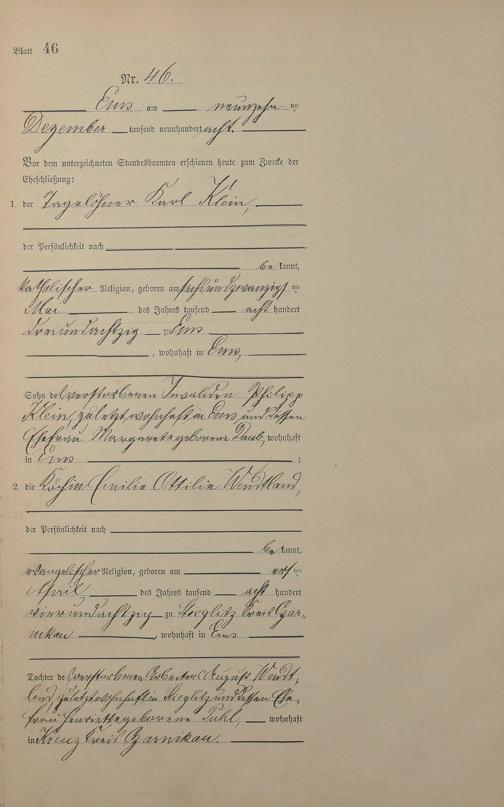 Blatt 46
Nr. 46.
Ems am neunzehn ten
Dezember tausend neunhundert acht.
Vor dem unterzeichneten Standesbeamten erschienen heute zum Zwecke der
Eheschließung:
1. der Tagelöhner Karl Klein,
der Persönlichkeit nach
be kannt,
katholischer Religion, geboren am sechsundzwanzigs ten
Mai des Jahres tausend acht hundert
dreiundachtzig zu Ems
, wohnhaft in Ems,
Sohn des verstorbenen Invaliden Philipp
Klein, zuletzt wohnhaft in Ems und dessen
Ehefrau Margarete geborene Daub, wohnhaft
in Ems ;
2. die Köchin Emilie Ottilie Wendtland,
der Persönlichkeit nach
be kannt,
evangelischer Religion, geboren am ers ten
April des Jahres tausend acht hundert
vierundachtzig zu Stieglitz Kreis Czar-
nikau , wohnhaft in Ems
Tochter des verstorbenen Arbeiters August Wendt-
land, zuletzt wohnhaft in Stieglitz und dessen Ehe-
frau Henriette geborene wohnhaft
in Kreuz Kreis Czarnikau.